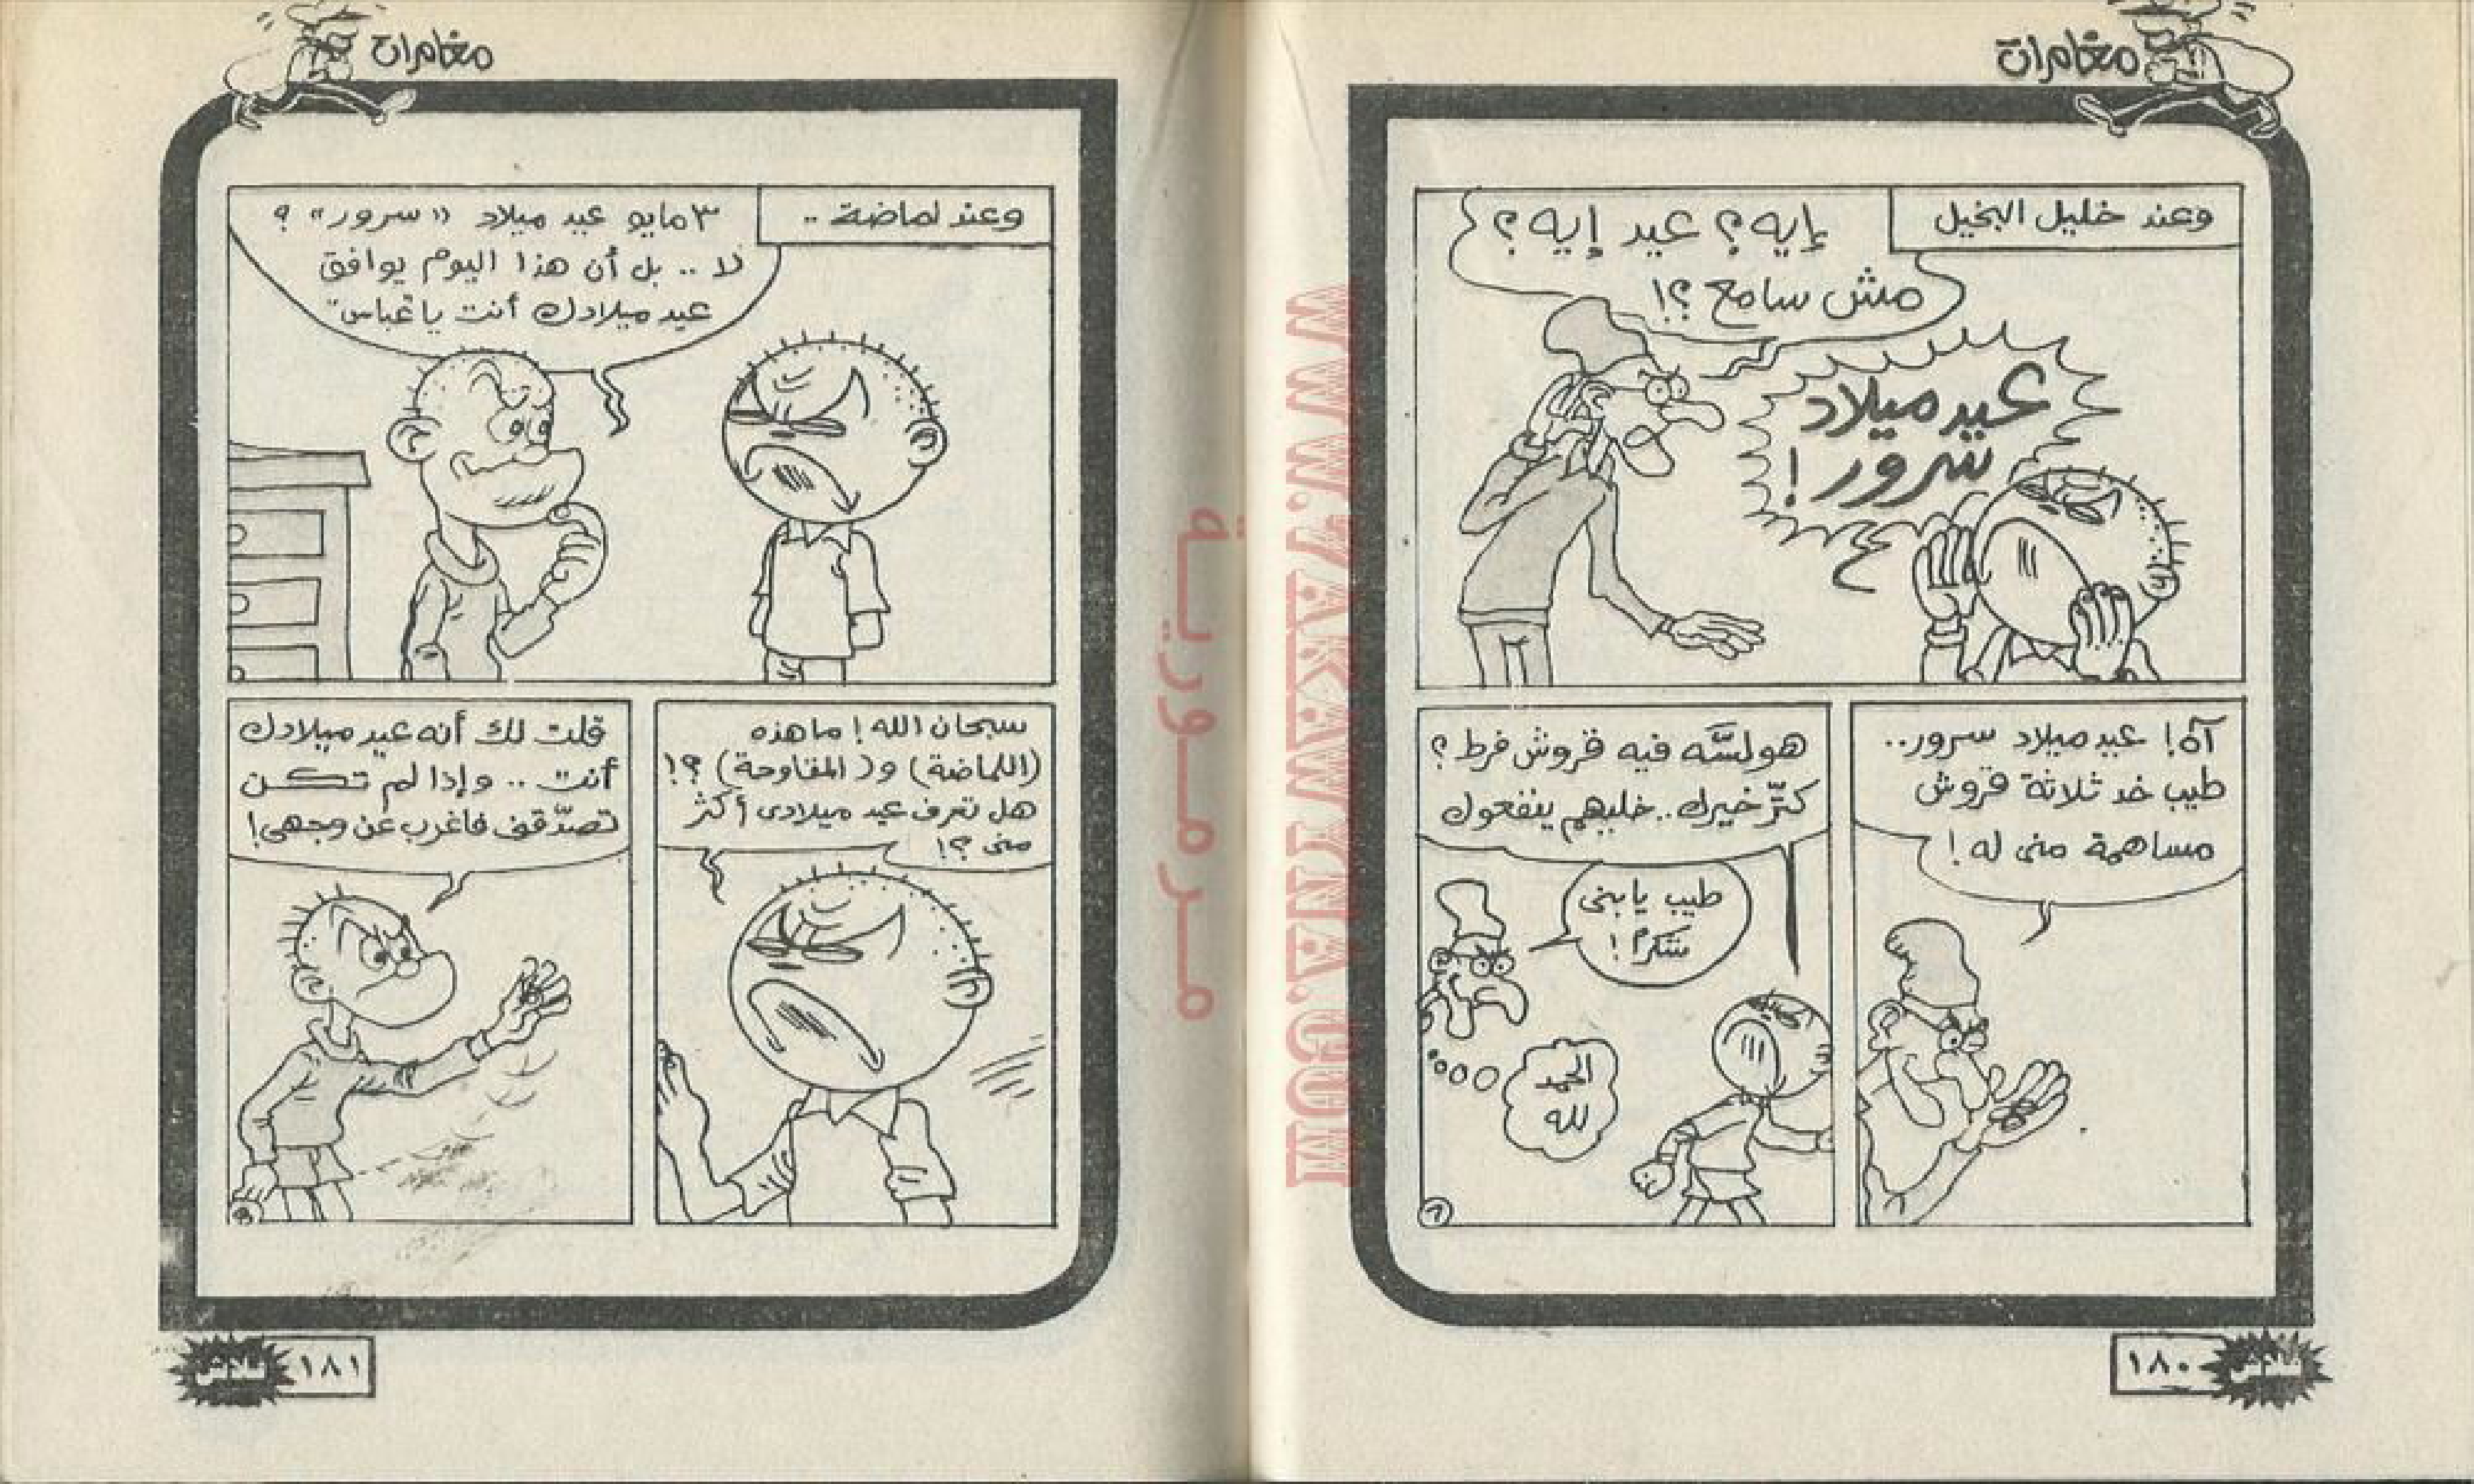 مغامرات
وعند خليل البخيل
إيه؟ عيد إيه؟
مش سامع؟!
عيد ميلاد
سرور!
آه! عيد ميلاد سرور..
طيب خد ثلاثة قروش
مساهمة منى له!
هو لسَّه فيه قروش فرط؟
كتَّر خيرك.. خليهم ينفعوك
طيب يا بنى
شكرا!
الحمد
لله
١٨٠
فلاش
مغامرات
وعند لماضة ..
٣ مايو عيد ميلاد «سرور»؟
لا .. بل أن هذا اليوم يوافق
عيد ميلادك أنت يا "عباس"
سبحان الله! ما هذه
(اللماضة) و(المقاوحة)؟!
هل تعرف عيد ميلادى أكثر
منى؟!
قلت لك أنه عيد ميلادك
أنت .. وإذا لم تكن
تصدّقنى فاغرب عن وجهى!
١٨١
فلاش
مرمورية
WWW.ARABLINE.COM